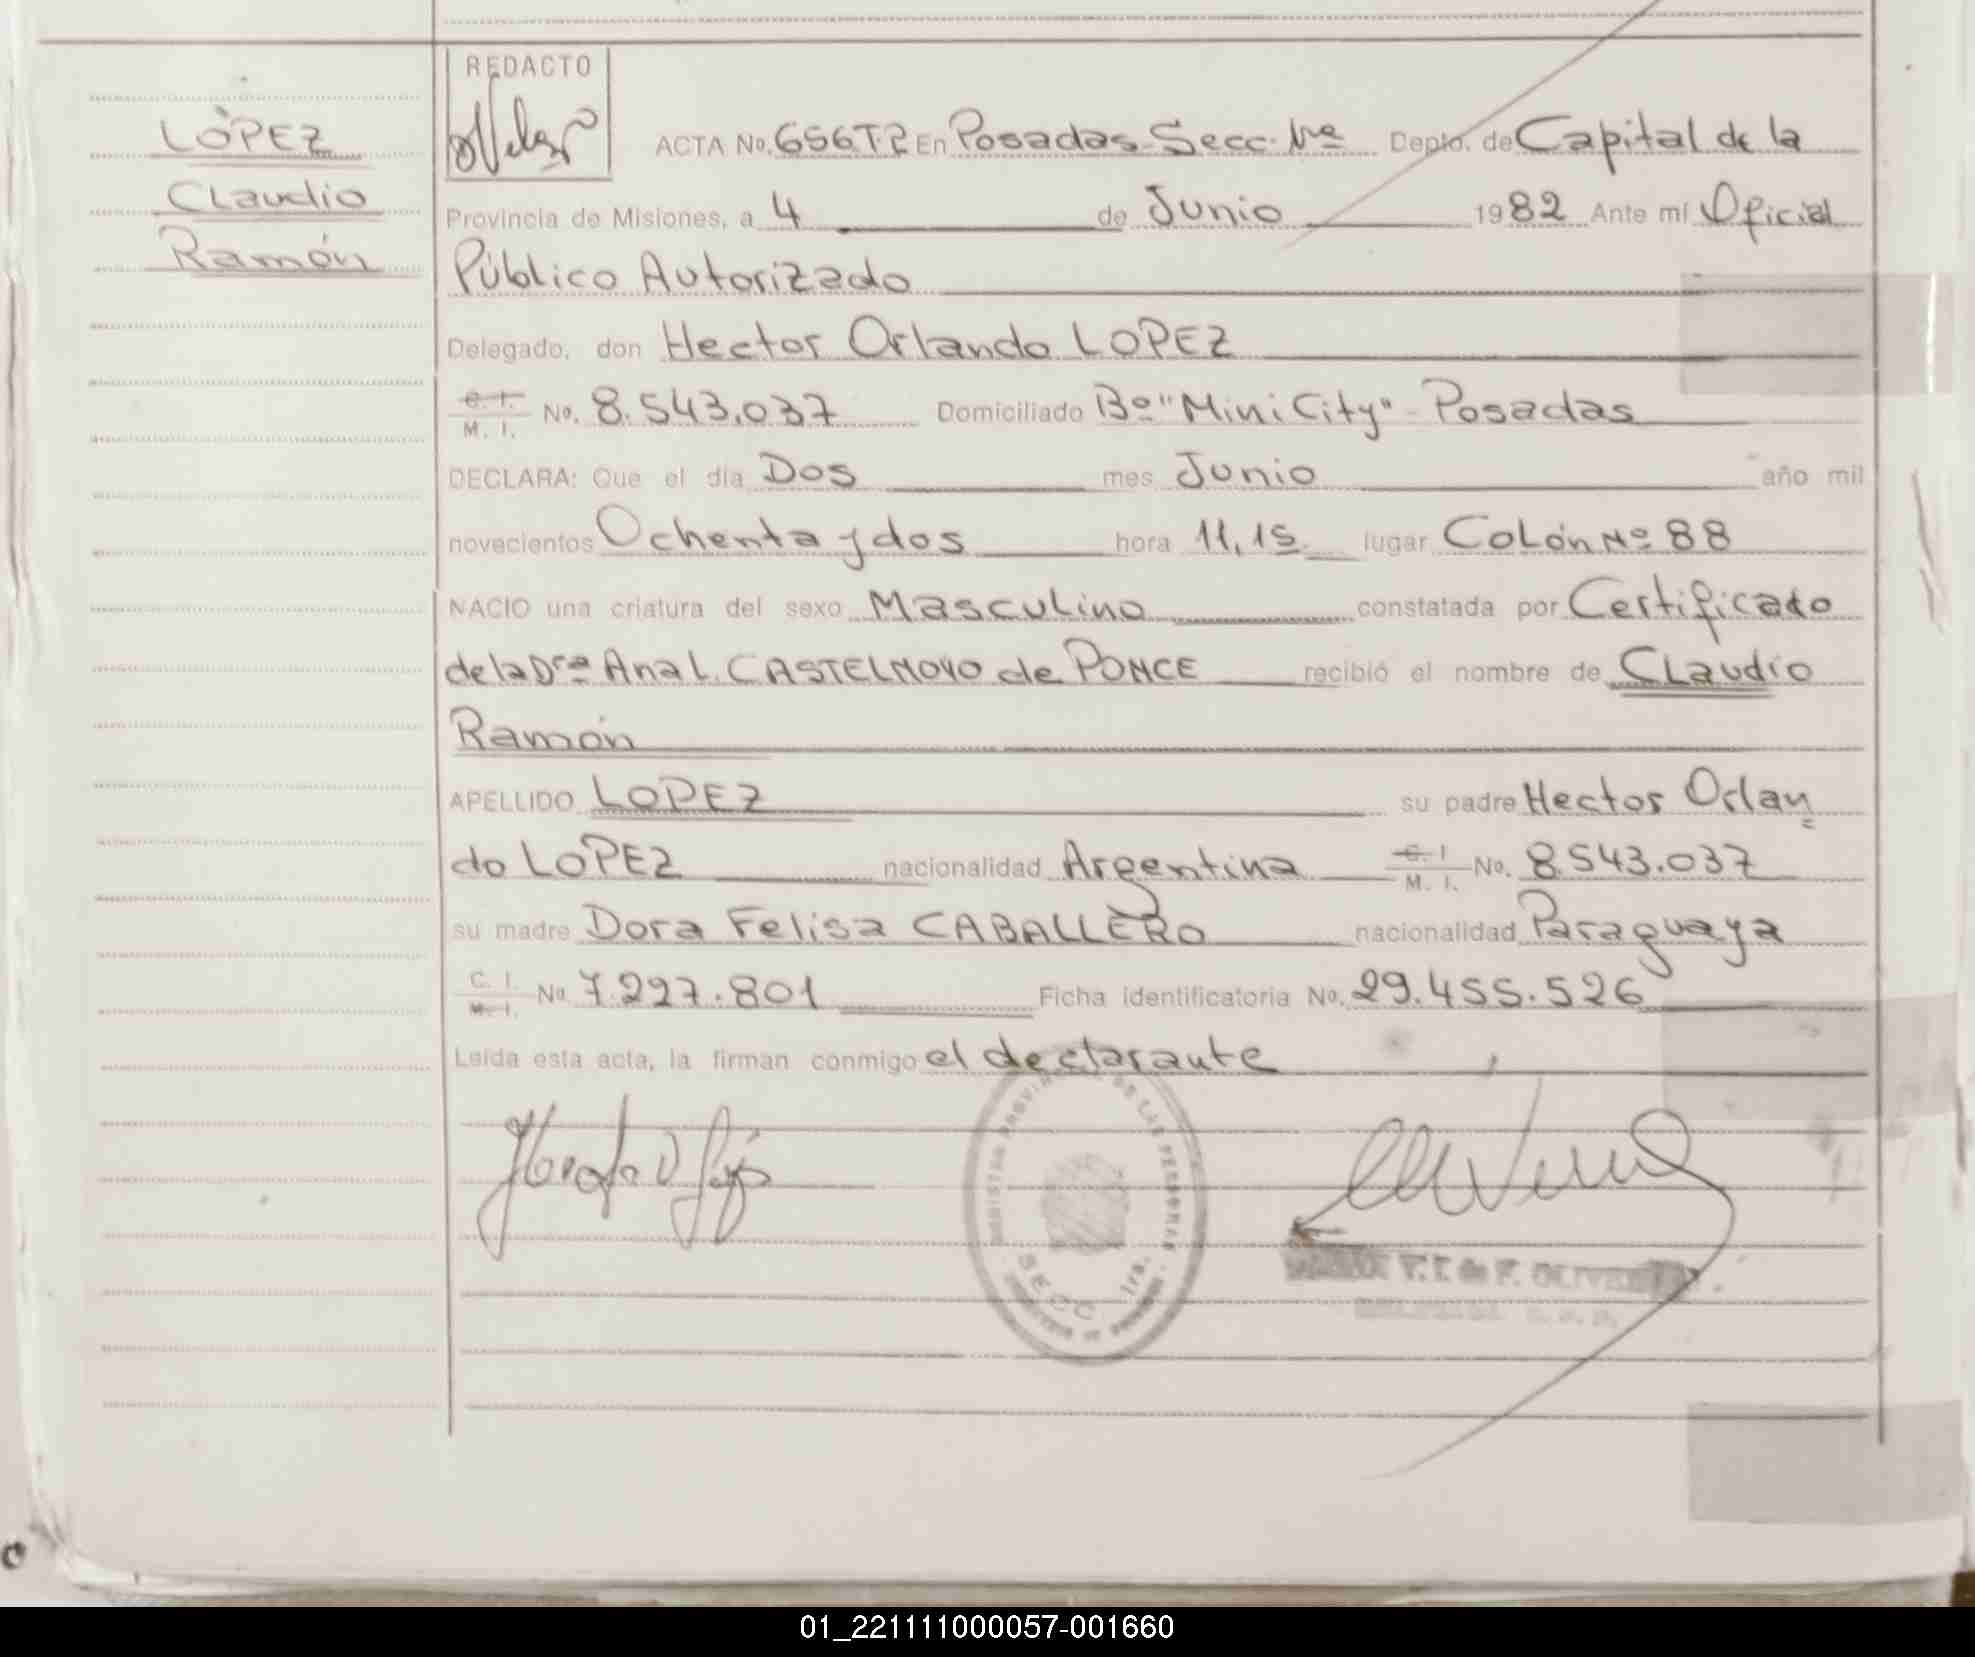 LÓPEZ
Claudio
Ramón
REDACTO
ACTA No. 656T-2 En Posadas-Secc. 1ra Depto. de Capital de la
Provincia de Misiones, a 4 de Junio 1982 Ante mí Oficial
Público Autorizado
Delegado, don Hector Orlando LOPEZ
C. I.
M. I. No. 8.543.037 Domiciliado Bº "Mini City" - Posadas
DECLARA: Que el día Dos mes Junio año mil
novecientos Ochenta y dos hora 11,15 lugar Colón Nº 88
NACIO una criatura del sexo Masculino constatada por Certificado
de la Dra Ana L. CASTELNOVO de PONCE recibió el nombre de Claudio
Ramón
APELLIDO LOPEZ su padre Hector Orlan
do LOPEZ nacionalidad Argentina C. I.
M. I. No. 8.543.037
su madre Dora Felisa CABALLERO nacionalidad Paraguaya
C. I.
M. I. No 7.227.801 Ficha identificatoria No. 29.455.526
Leída esta acta, la firman conmigo el declarante
DE LAS PERSONAS
SECC. 1ra.
01_221111000057-001660